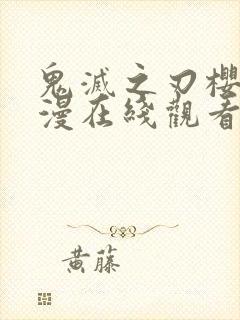 鬼滅之刃櫻
漫在綫觀看
黄藤